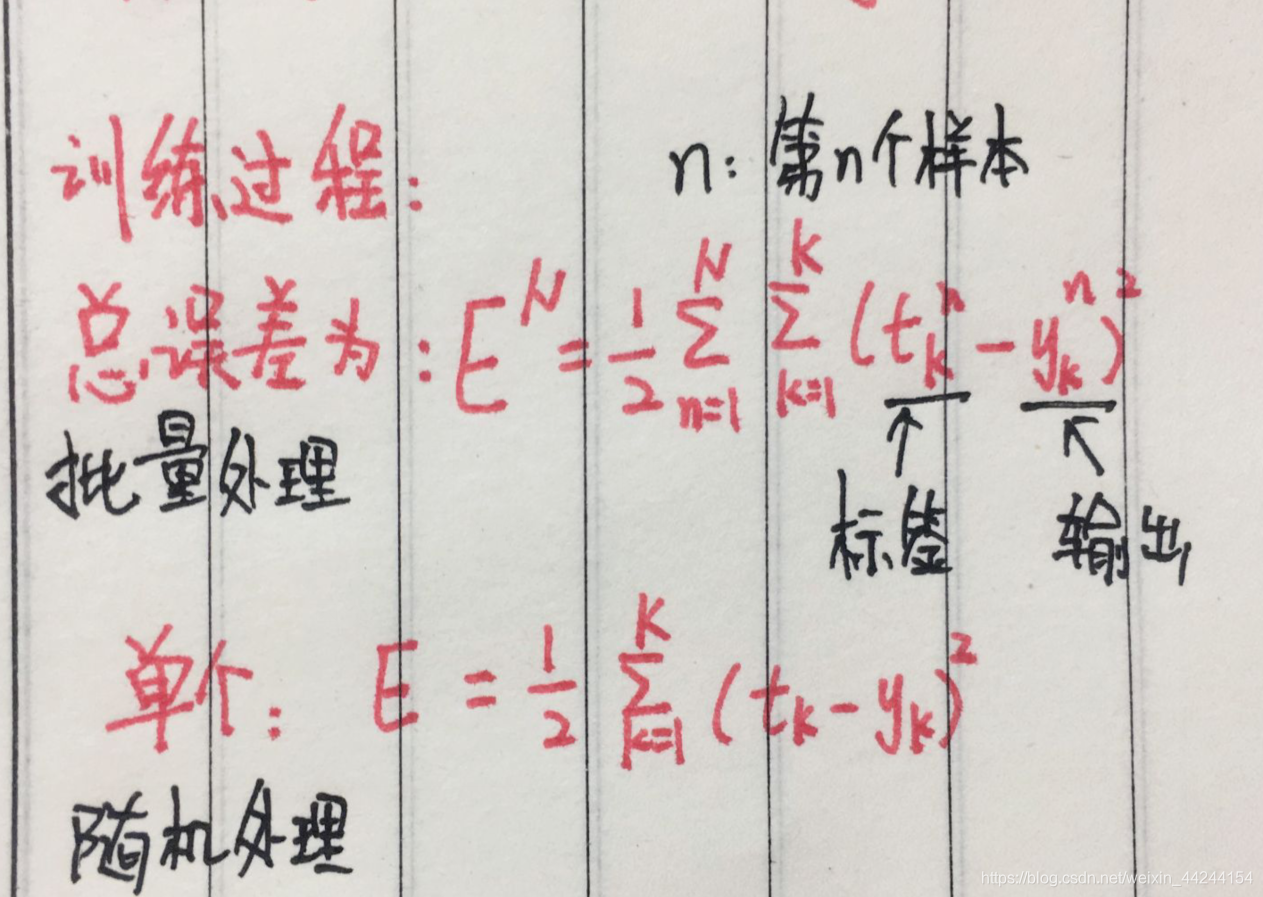 训练过程:
n: 第n个样本
总误差为: E^N = 1/2 ∑_{n=1}^{N} ∑_{k=1}^{K} (t_k^n - y_k^n)^2
批量处理
标签 输出
单个: E = 1/2 ∑_{k=1}^{K} (t_k - y_k)^2
随机处理
https://blog.csdn.net/weixin_44244154